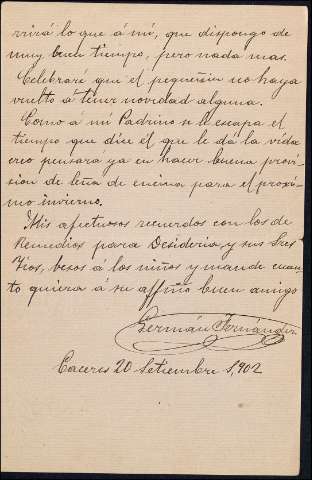 virá lo que á mí, que dispongo de
muy buen tiempo, pero nada mas.
Celebraré que el pequeñin no haya
vuelto á tener novedad alguna.
Como á mi Padrino se le escapa el
tiempo que dice él que le dá la vida
creo pensará ya en hacer buena provi-
sion de leña de encina para el proxi-
mo invierno.
Mis afectuosos recuerdos con los de
Remedios para Desideria y sus Sres
Tios, besos á los niños y mande cuan-
to quiera á su affmo buen amigo
Germán Fernández
Caceres 20 Setiembre 1,902